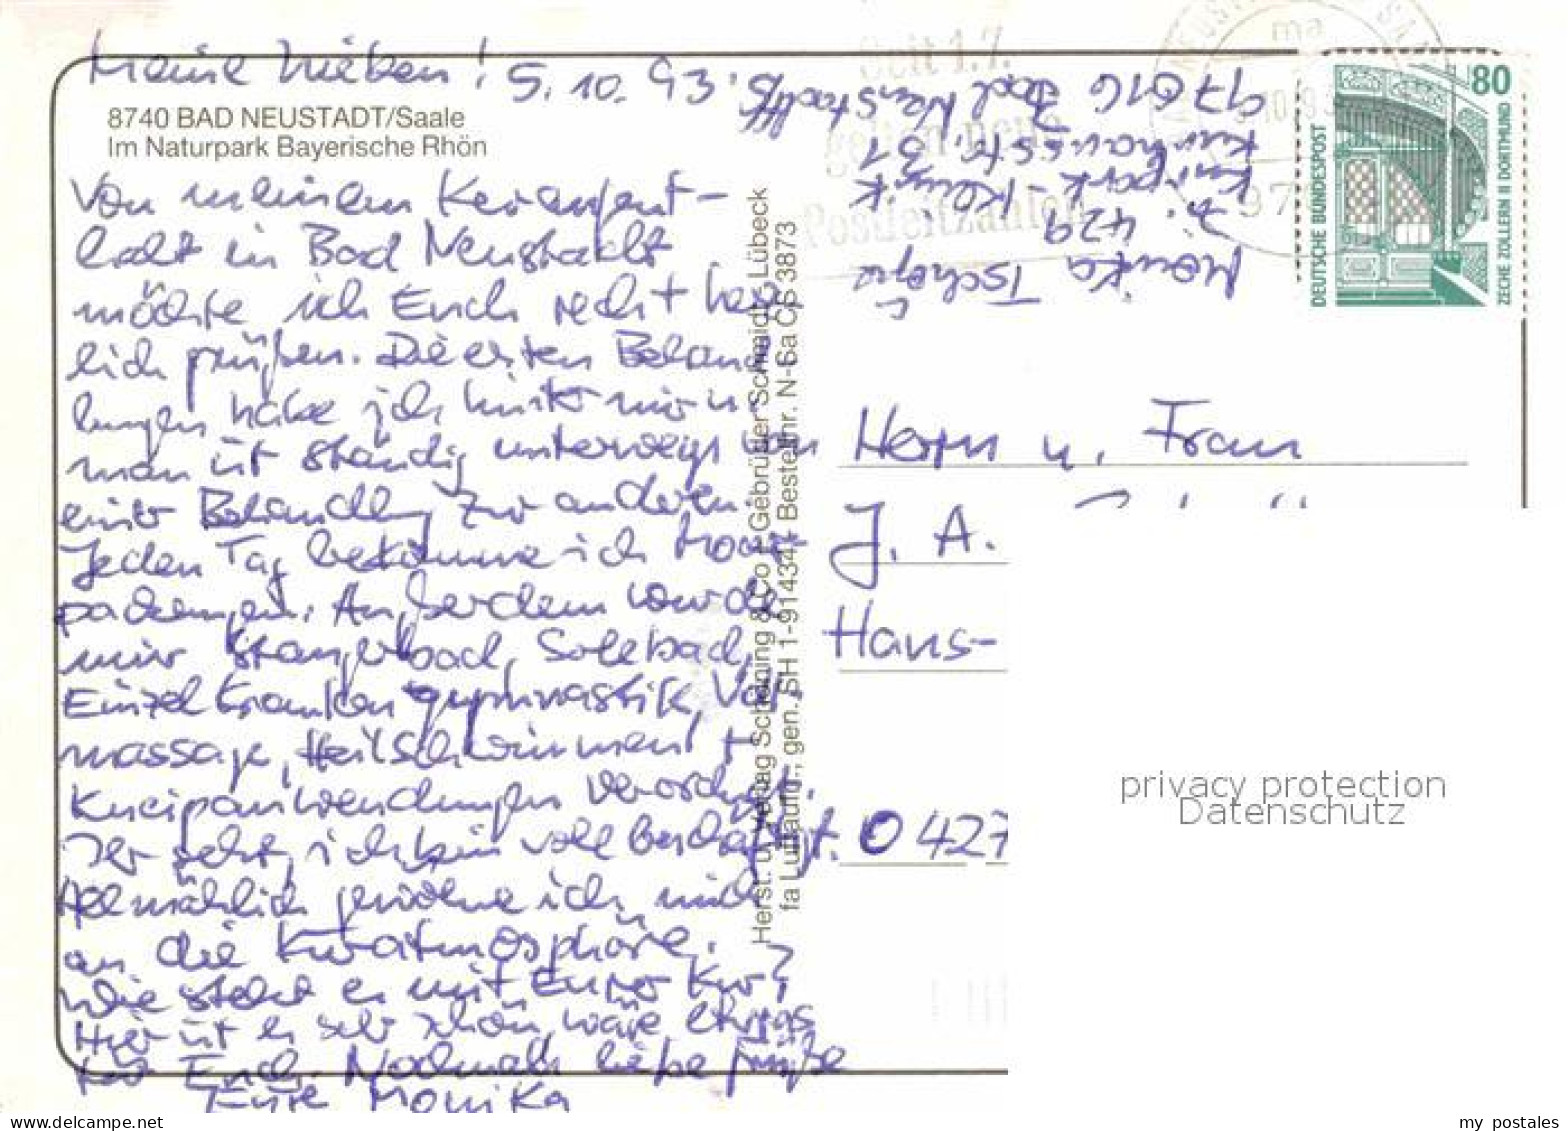 Meine Lieben! 5.10.93
8740 BAD NEUSTADT/Saale
Im Naturpark Bayerische Rhön
Von meinem Kuraufent-
halt in Bad Neustadt
möchte ich Euch recht herz
lich grüßen. Die ersten Behand
lungen habe ich hinter mir u.
man ist ständig unterwegs von
einer Behandlung zur anderen.
Jeden Tag bekomme ich Moor-
packungen. Außerdem wurde
mir Stangerbad, Solebad,
Einzelkrankengymnastik,
massage, Heilschwimmen +
Kneipanwendungen verordnet.
Ihr seht, ich bin voll beschäftigt.
Allmählich gewöhne ich mich
an die Kuratmosphäre.
Wie steht es mit Eurer Kur?
Hier ist es sehr schön, wäre etwas
für Euch. Nochmals liebe Grüße
Eure Monika
Herst. u. Verlag Schöning & Co + Gebrüder Schmidt, Lübeck
fa Luftaufn., gen. SH 1-91434 Bestellnr. N-Sa CS 3873
Monika
Z. 429
Kurpark-Klinik
Kurhausstr. 31
97616 Bad Neustadt/S.
Seit 1.7.
gelten neue
Postleitzahlen
80
DEUTSCHE BUNDESPOST
ZECHE ZOLLERN II DORTMUND
Herrn u. Frau
J. A.
Hans-
0 427
privacy protection
Datenschutz
my postales